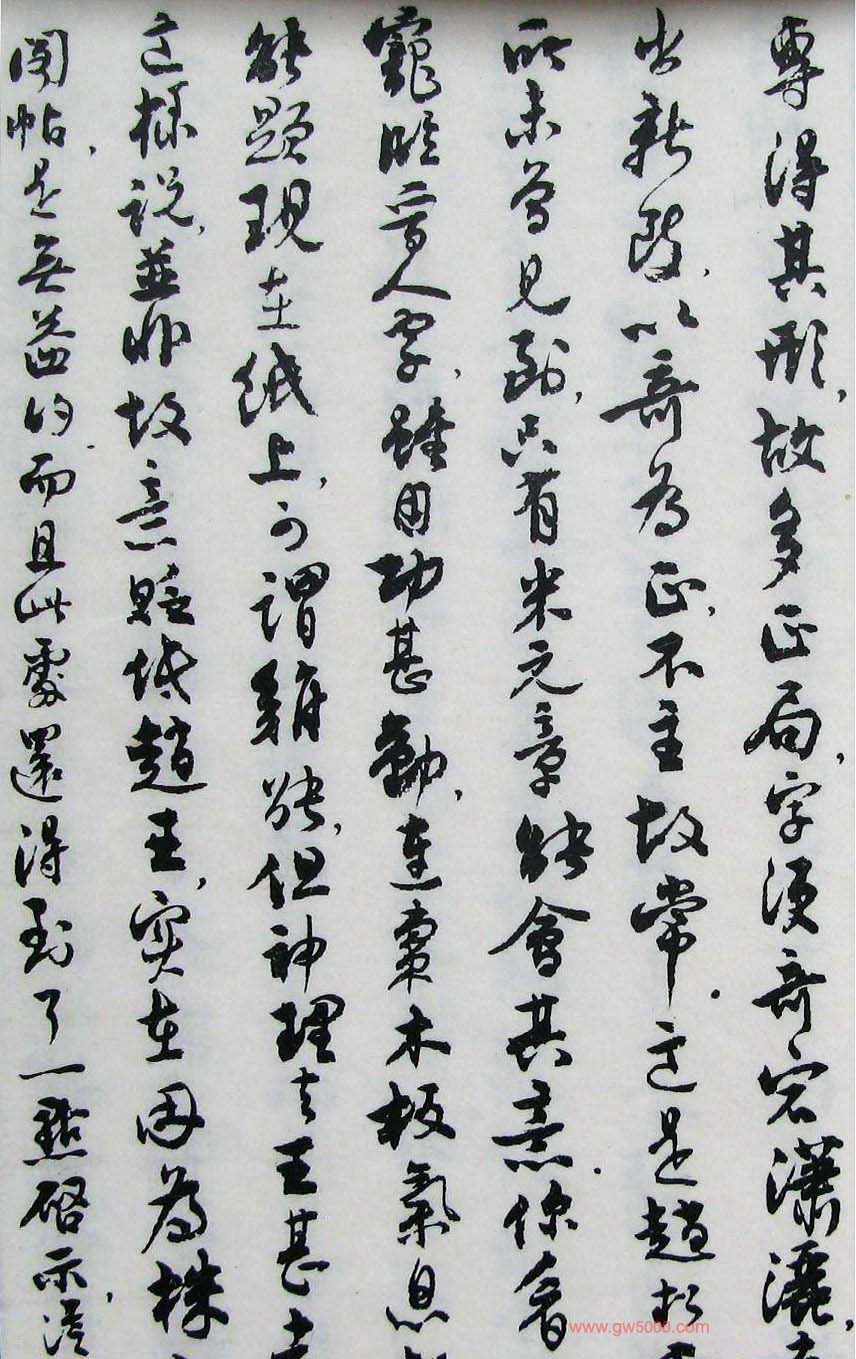 專得其形,故多正局,字便奇宕瀟灑,
出新致,以奇為正,不主故常。这是趙松
所未曾見到,只有米元章能會其意。你看
寵臨晉人字,雖用功甚勤,連棗木板氣息
能顯現在紙上,可謂難能,但神理去王甚
这樣説,並非故意貶低趙王,實在因為株
閣帖,是無益的。而且此處還得到了一點啓示,從
www.gw5000.com